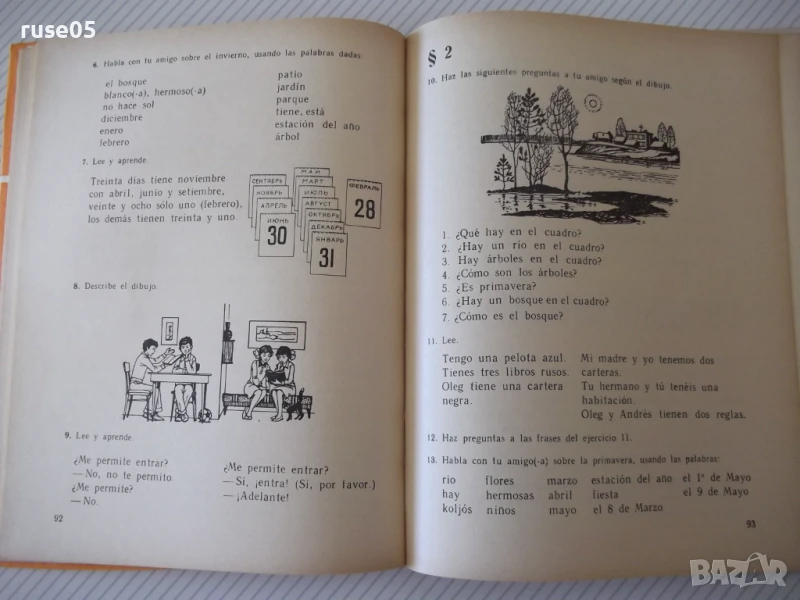 ruse05
6. Habla con tu amigo sobre el invierno, usando las palabras dadas:
el bosque
blanco(-a), hermoso(-a)
no hace sol
diciembre
enero
febrero
patio
jardín
parque
tiene, está
estación del año
árbol
7. Lee y aprende.
Treinta días tiene noviembre
con abril, junio y setiembre,
veinte y ocho sólo uno (febrero),
los demás tienen treinta y uno.
СЕНТЯБРЬ
НОЯБРЬ
АПРЕЛЬ
ИЮНЬ
30
МАЙ
МАРТ
ИЮЛЬ
АВГУСТ
ОКТЯБРЬ
ДЕКАБРЬ
ЯНВАРЬ
31
ФЕВРАЛЬ
28
8. Describe el dibujo.
9. Lee y aprende.
¿Me permite entrar?
—No, no te permito.
¿Me permite?
—No.
¿Me permite entrar?
—Sí, ¡entra! (Sí, por favor.)
—¡Adelante!
92
§ 2
10. Haz las siguientes preguntas a tu amigo según el dibujo.
1. ¿Qué hay en el cuadro?
2. ¿Hay un río en el cuadro?
3. Hay árboles en el cuadro?
4. ¿Cómo son los árboles?
5. ¿Es primavera?
6. ¿Hay un bosque en el cuadro?
7. ¿Cómo es el bosque?
11. Lee.
Tengo una pelota azul.
Tienes tres libros rusos.
Oleg tiene una cartera
negra.
Mi madre y yo tenemos dos
carteras.
Tu hermano y tú tenéis una
habitación.
Oleg y Andrés tienen dos reglas.
12. Haz preguntas a las frases del ejercicio 11.
13. Habla con tu amigo(-a) sobre la primavera, usando las palabras:
río flores marzo estación del año el 1º de Mayo
hay hermosas abril fiesta el 9 de Mayo
koljós niños mayo el 8 de Marzo
93
BAZAR